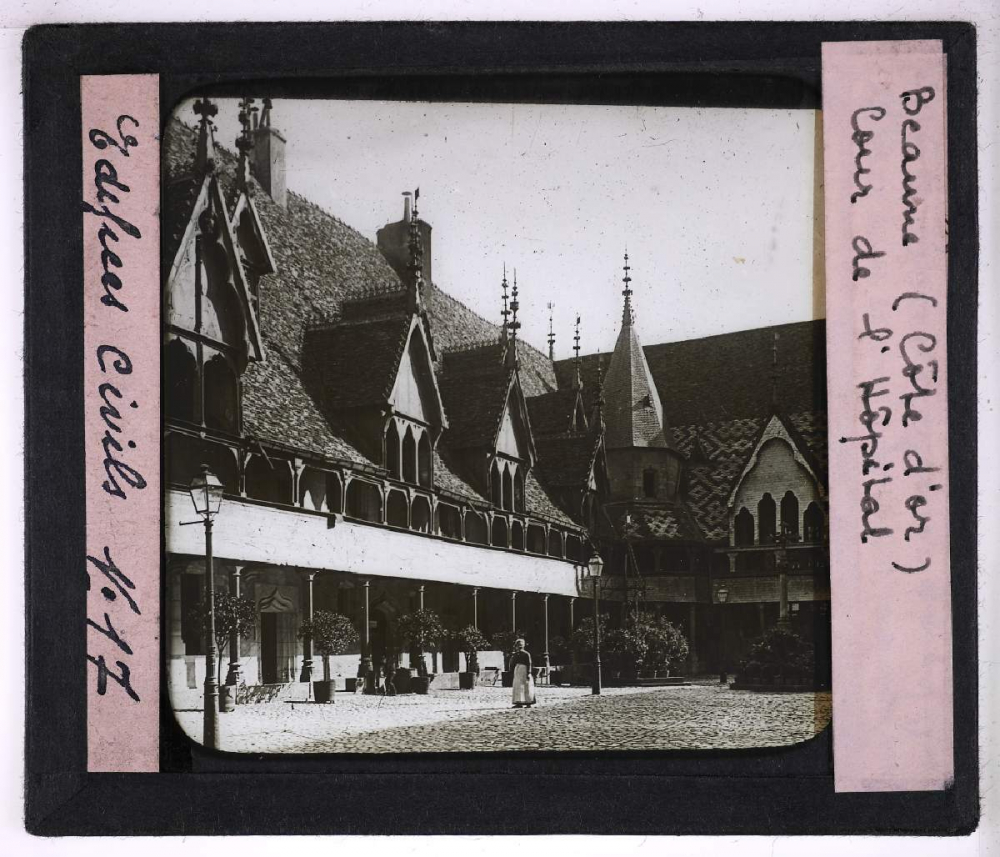 Edifices Civils N. 17
Beaune (Côte d'or)
Cour de l'Hôpital